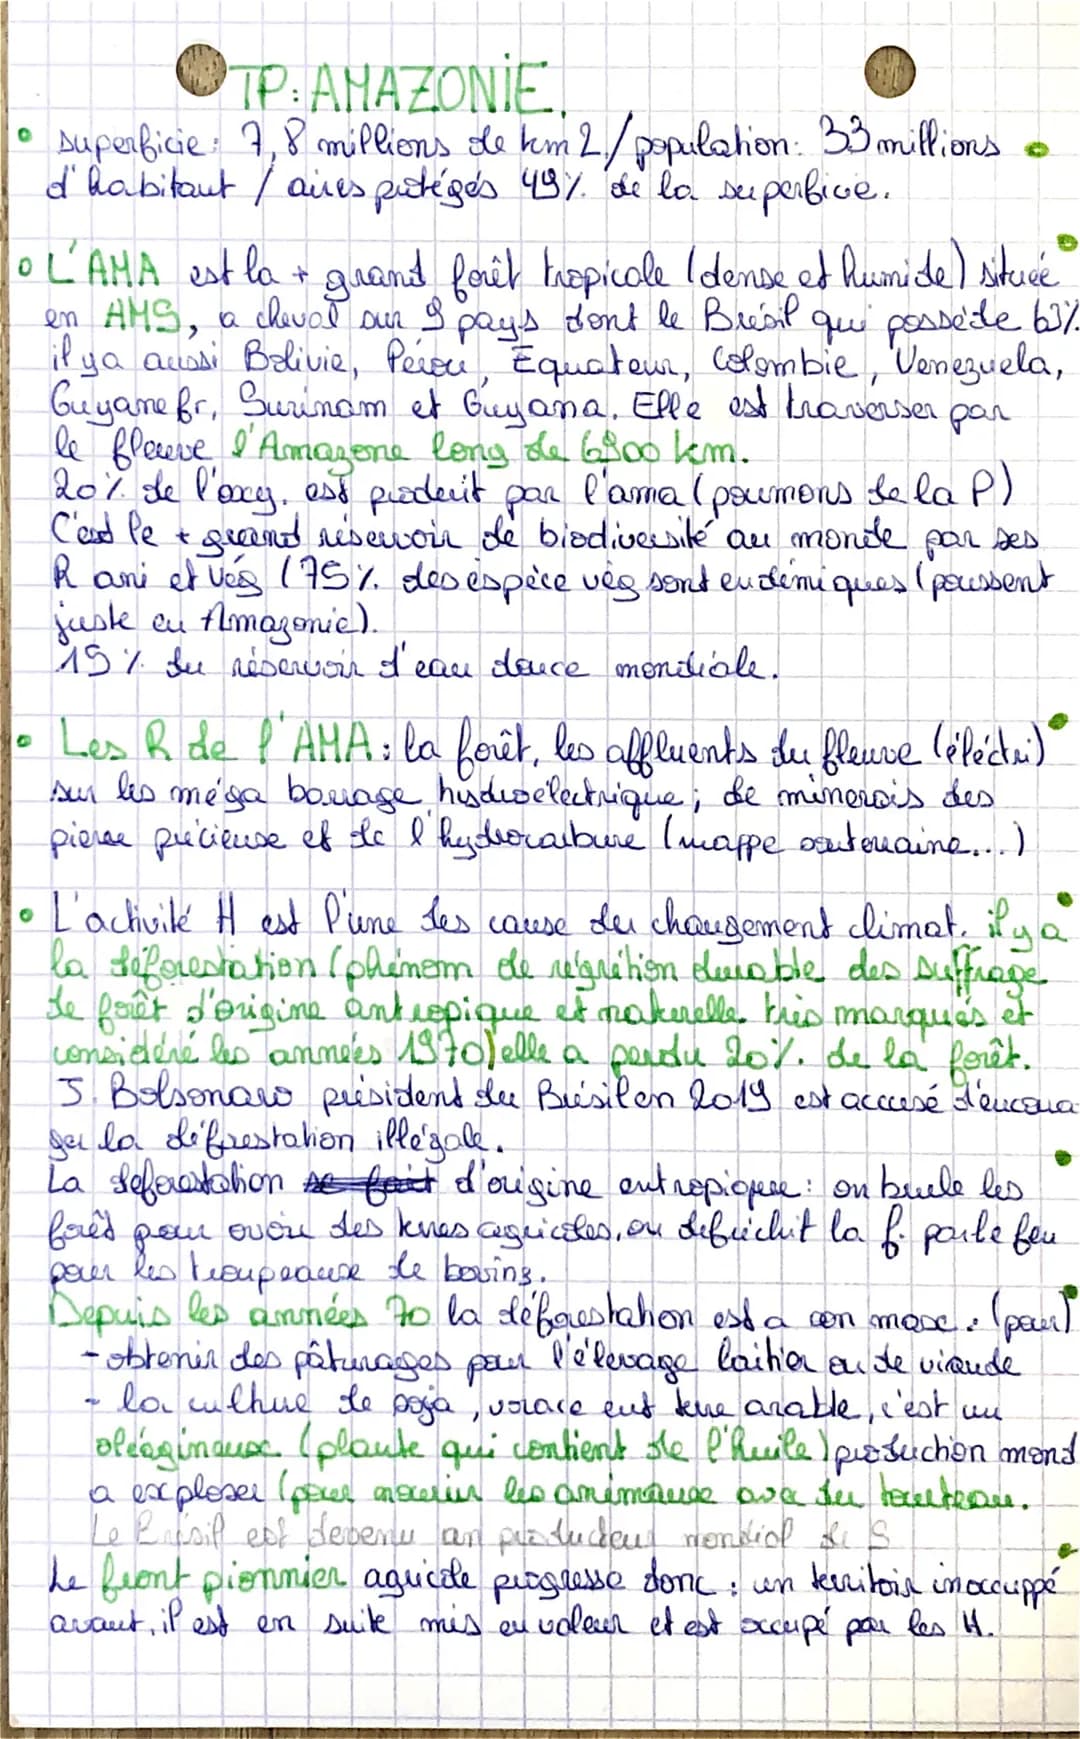 TP: AMAZONIE.
• superficie: 7,8 millions de km2/population: 33 millions
d'habitant / aires protégés 49% de la superficie.
• L'AMA est la + grand forêt tropicale (dense et humide) située
en AMS, a cheval sur 9 pays dont le Brésil qui possède 63%.
il y a aussi Bolivie, Pérou, Equateur, Colombie, Venezuela,
Guyane fr, Surinam et Guyana. Elle est traverser par
le fleuve l'Amazone long de 6900 km.
20% de l'oxy. est produit par l'ama (poumons de la P)
C'est le + grand réservoir de biodiversité au monde par ses
R ani et vég (75% des espèce vég sont endémiques (poussent
juste en Amazonie).
15% du réservoir d'eau douce mondiale.
• Les R de l'AMA: la forêt, les affluents du fleuve (éléctri)
sur les méga barrage hydroélectrique; de minerais des
pierre précieuse et de l'hydrocarbure (nappe souteraine...)
• L'activité H est l'une des cause du changement climat. il y a
la déforestation (phénom de régrétion durable des suffrage
de forêt d'origine antropique et naturelle très marqués et
considéré les années 1970) elle a perdu 20%. de la forêt.
J. Bolsonaro président du Brésil en 2019 est accusé d'encoura
ger la défrestation illégale.
La deforestation se fait d'origine entropique: on brule les
forêt pour avoir des terres agricoles, on défrichit la f. par le feu
pour les troupeaux de bovins.
Depuis les années 70 la déforestation est a son max: (pour)
- obtenir des pâturages pour l'élevage laitier ou de viande
- la culture de soja, vorace ent terre arable, c'est un
oléagineux (plante qui contient de l'huile) production mond
a exploser (pour nourrir les animaux avec du tourteau.
Le Brésil est devenu un producteur mondial de S
Le front pionnier agricole progresse donc: un territoir inoccuppé
avant, il est en suite mis en valeur et est occupé par les H.